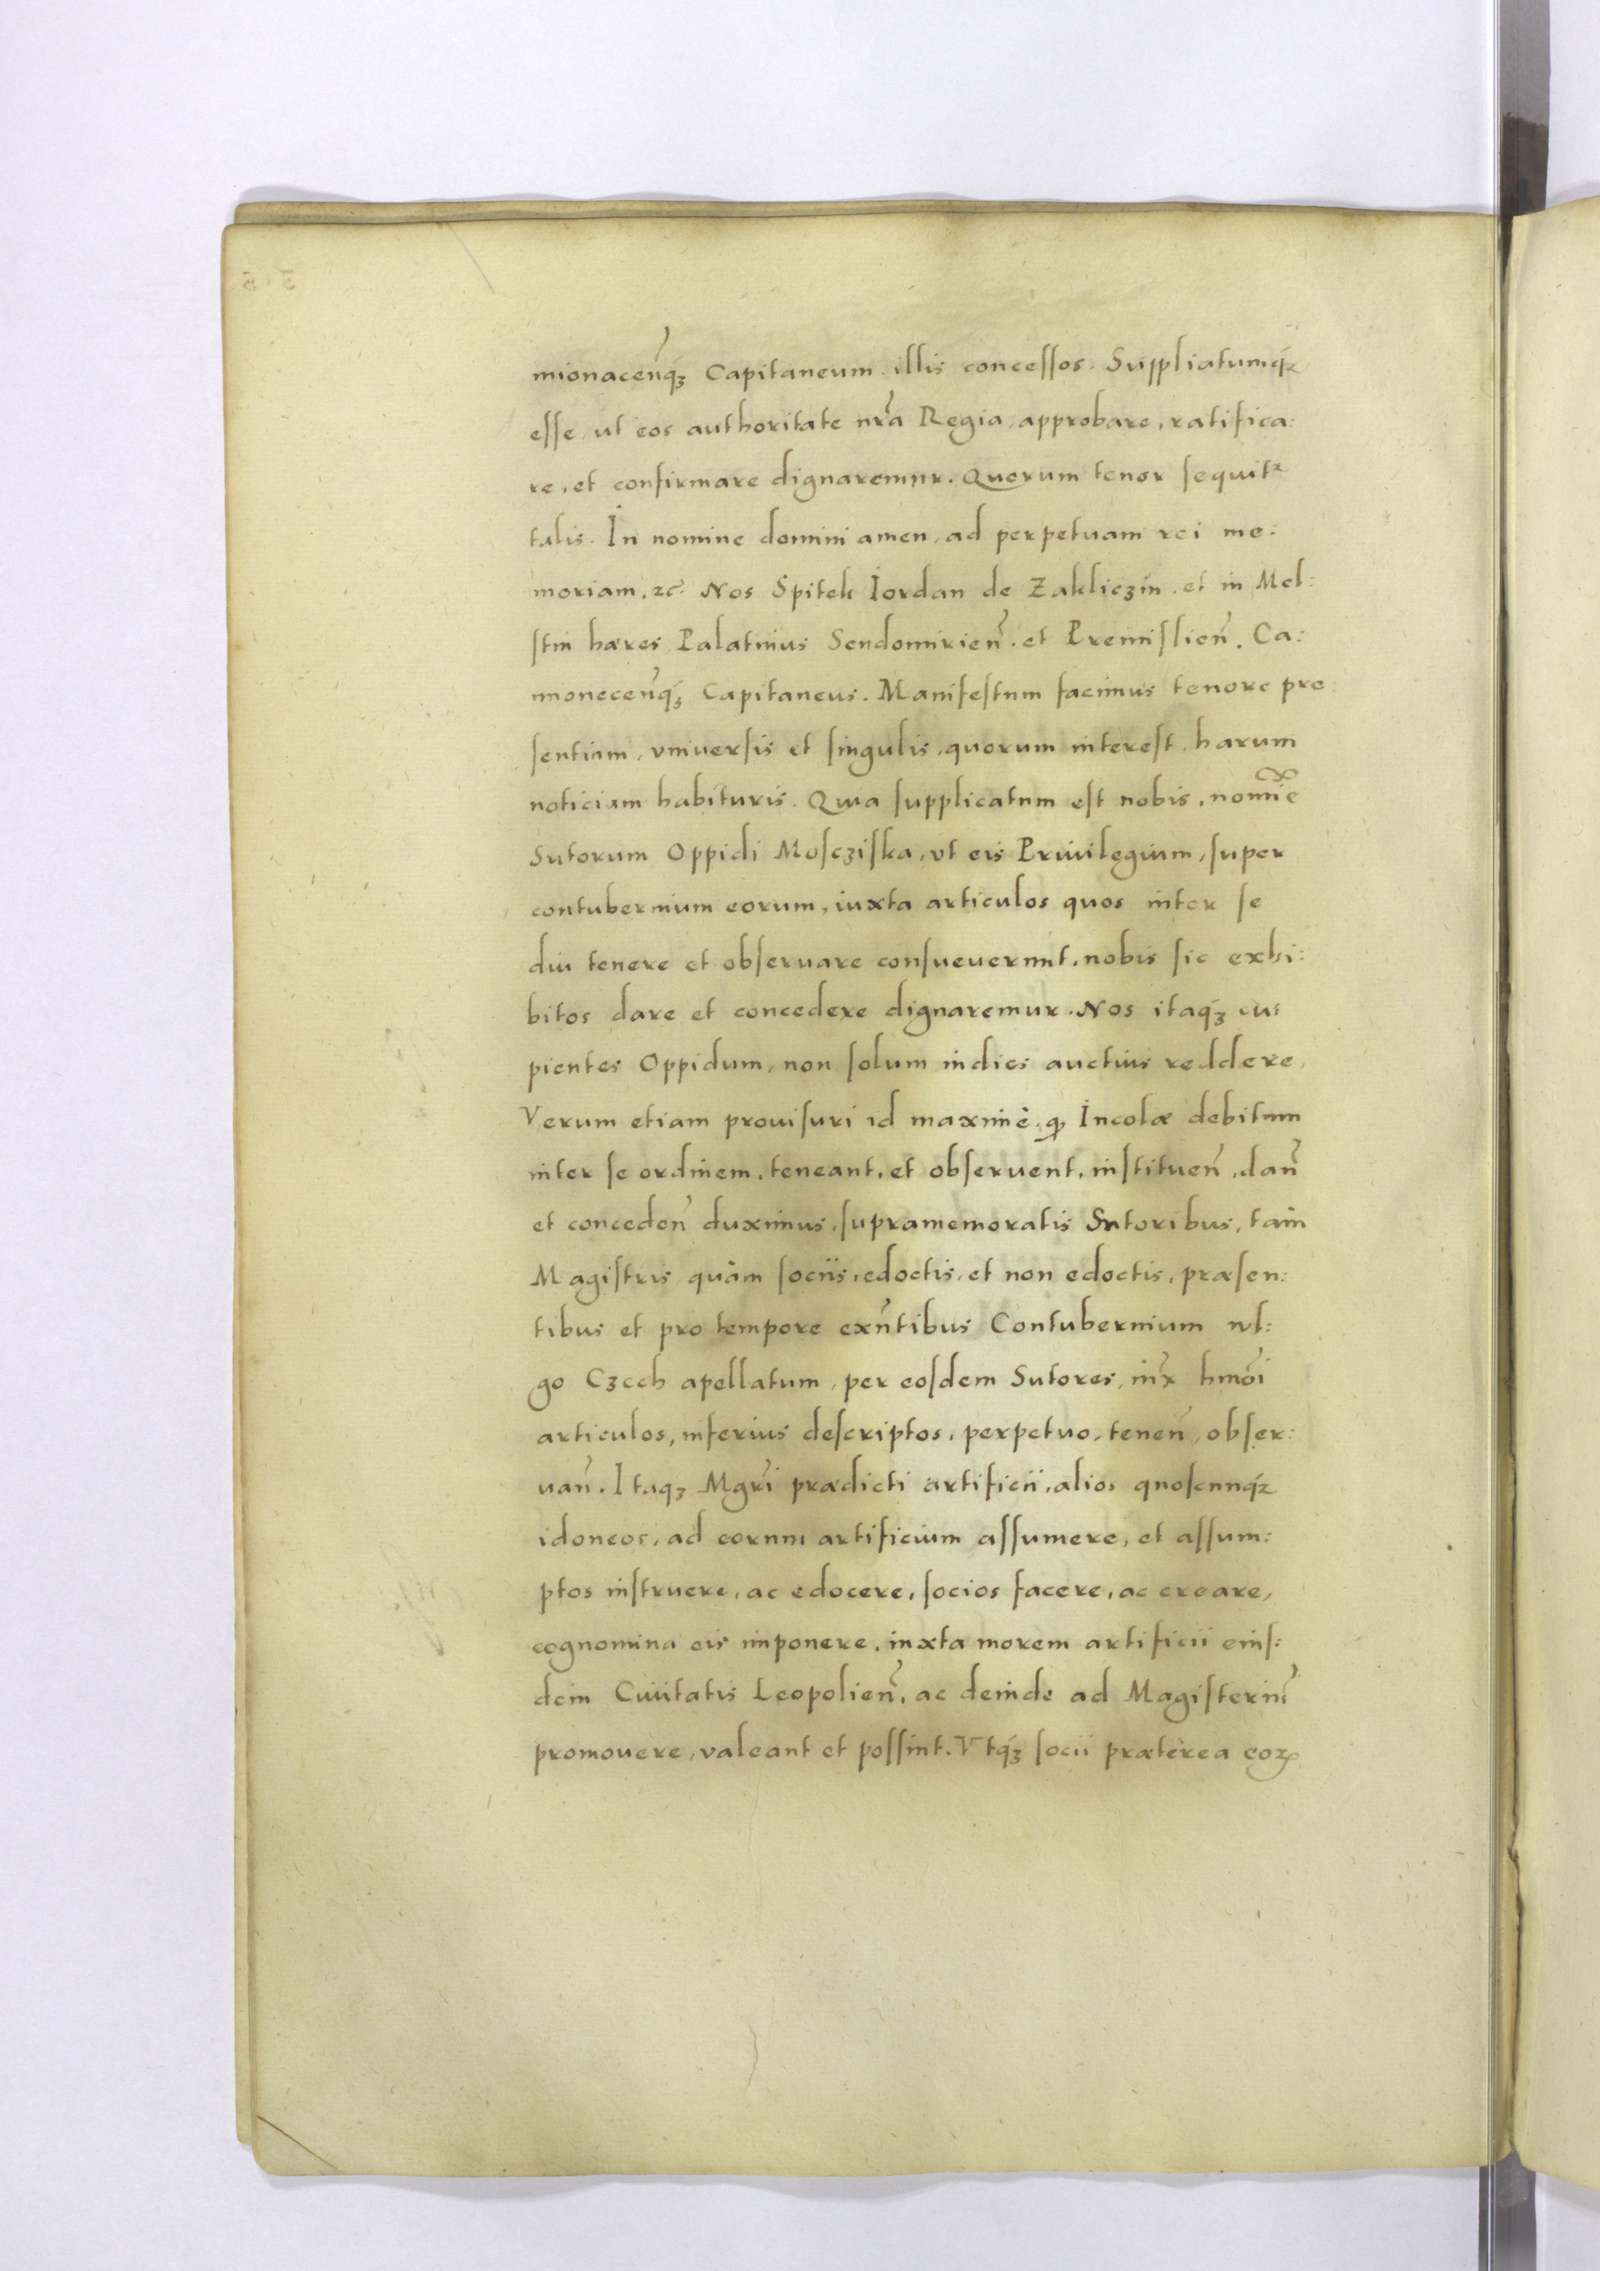 mionaceñq₃ Capitaneum illis concessos. Suppliatumq₃
esse, ut eos authoritate nr̃a Regia, approbare, ratifica:
re, et confirmare dignaremur. Quorum tenor sequitᷣ
talis. In nomine domini amen, ad perpetuam rei me:
moriam, ⁊c̃. Nos Spitek Iordan de Zakliczin, et in Mel:
stin hæres Palatinus Sendomirieñ. et Premislieñ. Ca:
mioneceñq₃ Capitaneus. Manifestum facimus tenore pre:
sentium, vniuersis et singulis, quorum interest, harum
noticiam habituris. Quia supplicatum est nobis, nomĩe
Sutorum Oppidi Moscziska, vt eis Priuilegium, super
contubernium eorum, iuxta articulos quos inter se
diu tenere et obseruare consueuerunt, nobis sic exhi:
bitos dare et concedere dignaremur. Nos itaq₃ cu:
pientes Oppidum, non solum indies auctius reddere,
Verum etiam prouisuri id maximè, ꝙ Incolæ debitum
inter se ordinem, teneant, et obseruent, instituеñ, dañ
et concedeñ duximus, supramemoratis Sutoribus, tam
Magistris quàm sociis, edoctis, et non edoctis, præsen:
tibus et pro tempore exñtibus Contubernium wl:
go Czech apellatum, per eosdem Sutores, iuẋ hmõi
articulos, inferius descriptos, perpetuo, teneñ, obser:
uañ. Itaq₃ Mgr̃i prædicti artificii, alios quoscunq₃
idoneos, ad eorum artificium assumere, et assum:
ptos instruere, ac edocere, socios facere, ac creare,
cognomina eis imponere, iuxta morem artificii eius:
dem Ciuitatis Leopolieñ, ac deinde ad Magisteriũ
promouere, valeant et possint. Vtq₃ socii præterea eoꝝ